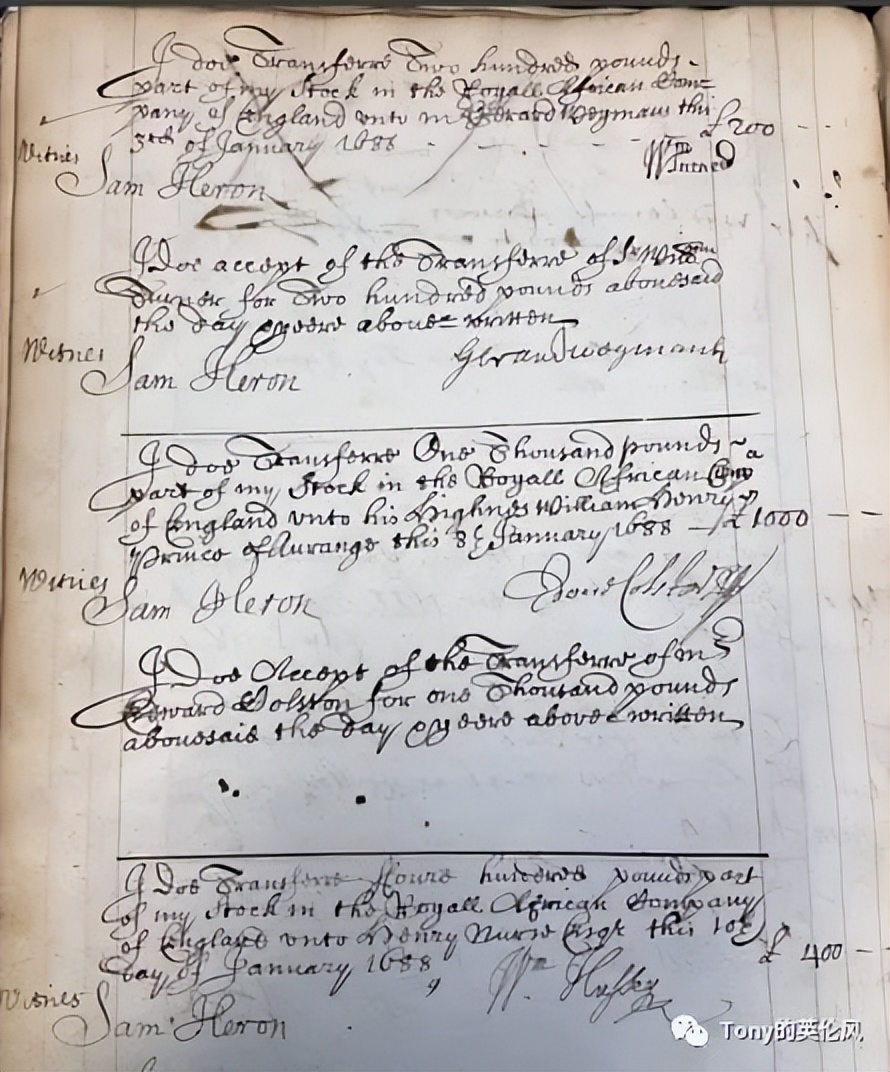 I doe Transferre Two hundred pounds
part of my Stock in the Royall African Com=
pany of England unto mr Gerard Weymans this
3rd of January 1688 - - - - - £ 200 - -
Wm Turner
Witnes
Sam Heron
I Doe accept of the Transferre of Sr Wm
Turner for Two hundred pounds abovesaid
the day & yeere above = written
Witnes
Sam Heron
I doe Transferre One Thousand pounds
part of my Stock in the Royall African Comp
of England unto his Highnes William Henry
Prince of Aurange this 8th January 1688 — £ 1000 — —
Witnes
Sam Heron
I Doe Accept of the Transferre of mr
Edward Colston for one Thousand pounds
abovesaid the day & yeere above written
I doe Transferre Foure hundred pounds part
of my Stock in the Royall African Company
of England unto Henry Nurse Esqr this 10th
day of January 1688 £ 400 —
Witnes
Sam Heron
Tony的英伦风